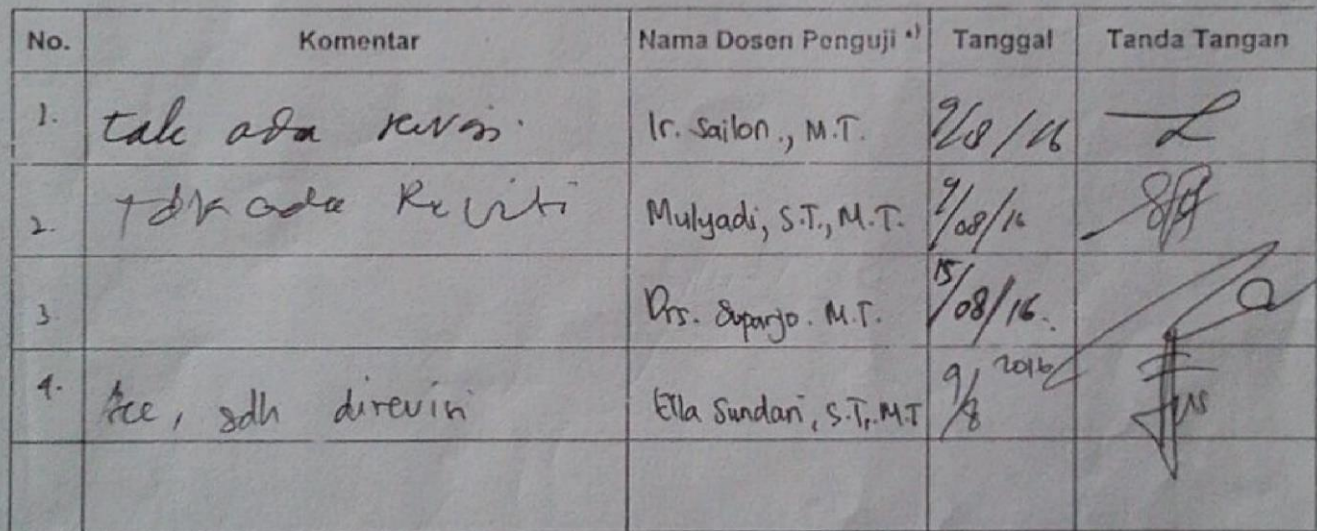 No. Komentar Nama Dosen Penguji *) Tanggal Tanda Tangan
1. tak ada revisi. Ir. Sailon., M.T. 9/8/16
2. tdk ada Revisi Mulyadi, S.T., M.T. 9/08/16
3. Drs. Suparjo. M.T. 15/08/16.
4. Acc, sdh direvisi Ella Sundari, S.T., M.T 9/8 2016